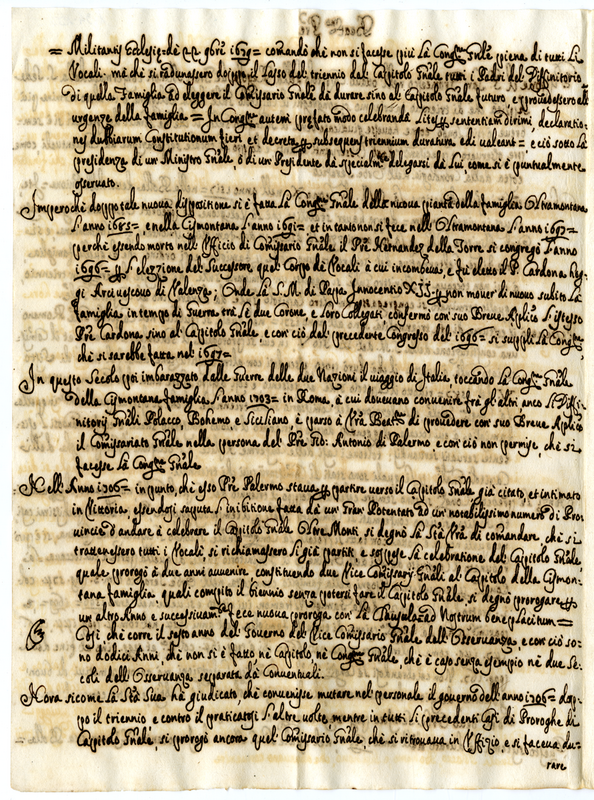 = Militantis Ecclesiæ = dè 22 9bri 1639 = comandò chè non si facesse più la Congne Gnle piena di tutti li
Vocali. mà chè si radunassero doppo il lasso del triennio dal Capitolo Gnale tutti i Padri del Diffinitorio
di quella Famiglia ad eleggere il Comissario Gnale dà durare sino al Capitolo Gnale futuro, e provedessero all'
urgenze della famiglia = In Congne autem præfato modo celebranda Lites per sententiam dirimi, declaratio-
nes dubbiarum Constitutionum fieri et decreta per subsequens triennium duratura edi valeant = e ciò sotto la
presidenza di un Ministro Gnale, ò di un Presidente dà specialmte delegarsi dà lui come si è puntualmente
osservato.
Imperochè doppo tale nuova disposizione si è fatta la Congne Gnale della nuova pianta della famiglia Oltramontana
l'anno 1685 = e nella Cismontana l'anno 1691 = et in tanto non si fece nell'Oltramontana l'anno 1697 =
perchè essendo morto nell'Officio di Comissario Gnale il Pre Hernandez della Torre si congregò l'anno
1696 = per l'elezzione del Successore quel Corpo de Vocali à cui incombeva, e fù eletto il P. Cardona hog-
gi Arcivescovo di Valenza; Onde la S. M. di Papa Innocentio XII per non mover di nuovo subito la
famiglia in tempo di Guerra trà le due Corone, e loro Collegati confermò con suo Breve Aplico l'istesso
Pre Cardona sino al Capitolo Gnale, e con ciò dal precedente Congresso del 1696 = si supplì la Congne,
chè si sarebbe fatta nel 1697 =
In questo Secolo poi imbarazzato dalle Guerre delle due Nazioni il viaggio di Italia, toccando la Congne Gnale
della Cismontana famiglia l'anno 1703 = in Roma, à cui dovevano convenire frà gl'altri anco li Diffi-
nitori Gnali Polacco, Bohemo e Siciliano, è parso à Vra Beatne di provedere con suo Breve Aplico
il Comissariato Gnale nella persona del Pre Antonio di Palermo e con ciò non permise, chè si
facesse la Congne Gnale
Nell'Anno 1706 = in punto, chè esso Pre Palermo stava per partire verso il Capitolo Gnale già citato, et intimato
in Vittoria essendosi saputa l'inibitione fatta dà un Gran Potentato ad un notabilissimo numero di Pro-
vincie d'andare à celebrare il Capitolo Gnale Oltre Monti, si degnò la Stà Vrà di comandare, chè si
trattenessero tutti i Vocali si richiamassero li già partiti e sospese la celebratione del Capitolo Gnale
quale prorogò à due anni avvenire constituendo due Vice Comissary Gnali al Capitolo della Cismon-
tana famiglia quali compito il biennio senza potersi fare il Capitolo Gnale, si degnò prorogare per
un altro Anno e successivamte fece nuova proroga con la Nostrum beneplacitum =
Così chè corre il sesto anno del Governo del Vice Comissario Gnale dell'Osservanza, e con ciò so-
no dodici Anni, chè non si è fatto nè Capitolo nè Congne Gnale, chè è caso senza esempio nè due Se-
coli dell'Osservanza separata dà Conventuali.
Hora sicome la Stà Sua hà giudicato, chè convenisse mutare nel personale il governo dell'anno 1706 = dop-
po il triennio e contro il praticatosi l'altre volte, mentre in tutti li precedenti casi di Proroghe di
Capitolo Gnale si prorogò ancora quel Comissario Gnale, chè si ritrovava in Offizio, e si faceva du-
rare